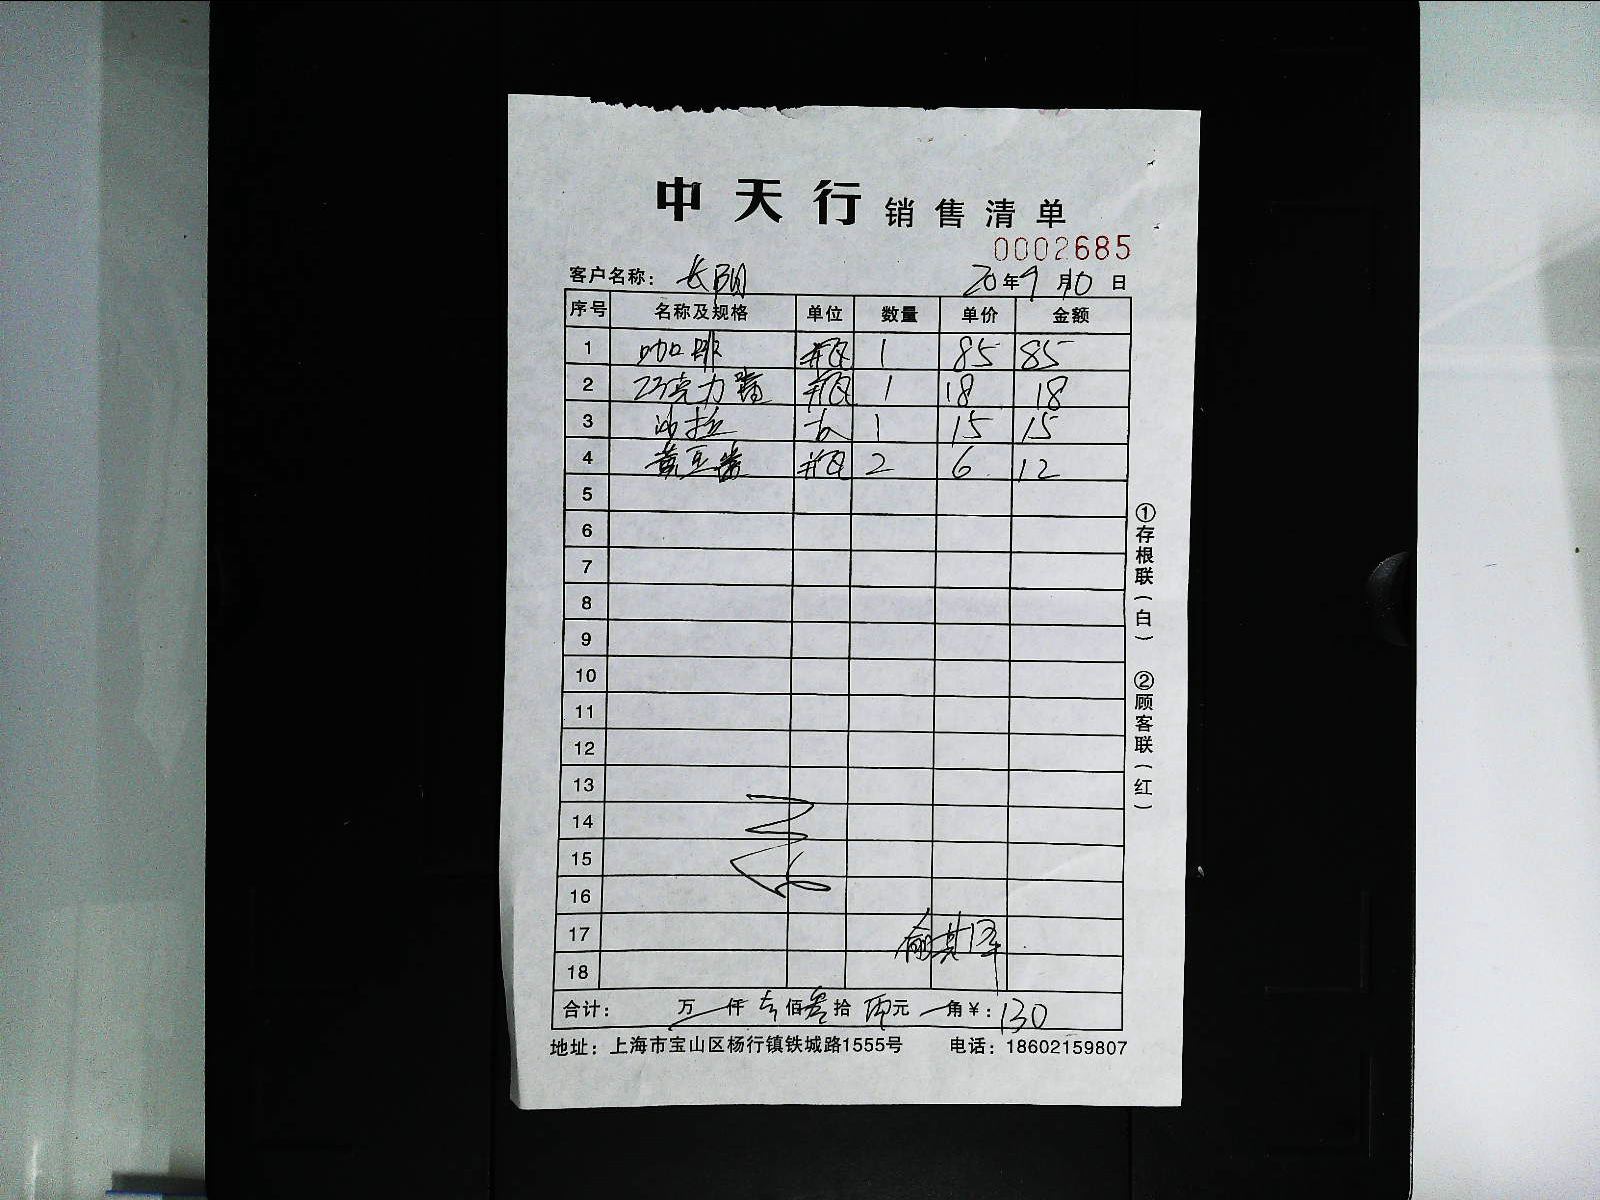 中天行 销售清单
0002685
客户名称： 长阳 20年9月10日
序号 名称及规格 单位 数量 单价 金额
1 咖啡 瓶 1 85 85
2 巧克力酱 瓶 1 18 18
3 沙拉 1 15 15
4 黄豆酱 瓶 2 6 12
5
6
7
8
9
10
11
12
13
14
15
16
17
18
合计： 万 仟 壹佰叁拾 元 角￥：130
地址：上海市宝山区杨行镇铁城路1555号 电话：18602159807
①存根联（白） ②顾客联（红）